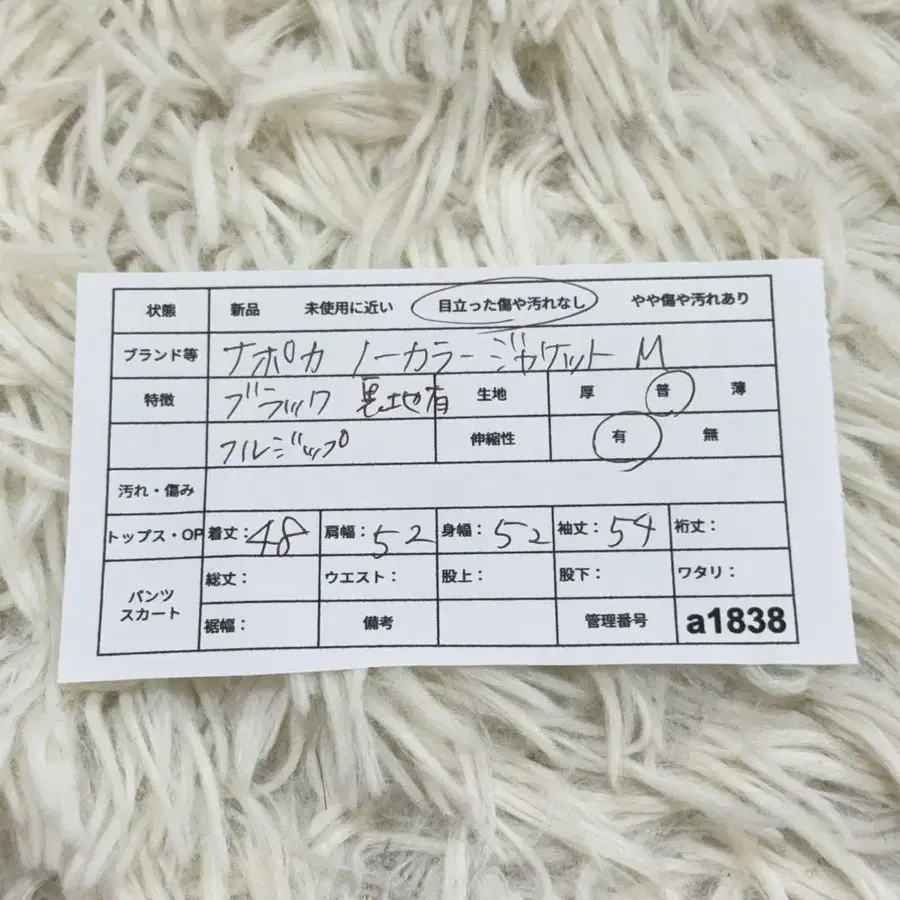 状態 新品 未使用に近い 目立った傷や汚れなし やや傷や汚れあり
ブランド等 ナポカ ノーカラージャケット M
特徴 ブラック 裏地有 生地 厚 普 薄
フルジップ 伸縮性 有 無
汚れ・傷み
トップス・OP 着丈：48 肩幅：52 身幅：52 袖丈：54 裄丈：
パンツ スカート 総丈： ウエスト： 股上： 股下： ワタリ：
裾幅： 備考 管理番号 a1838